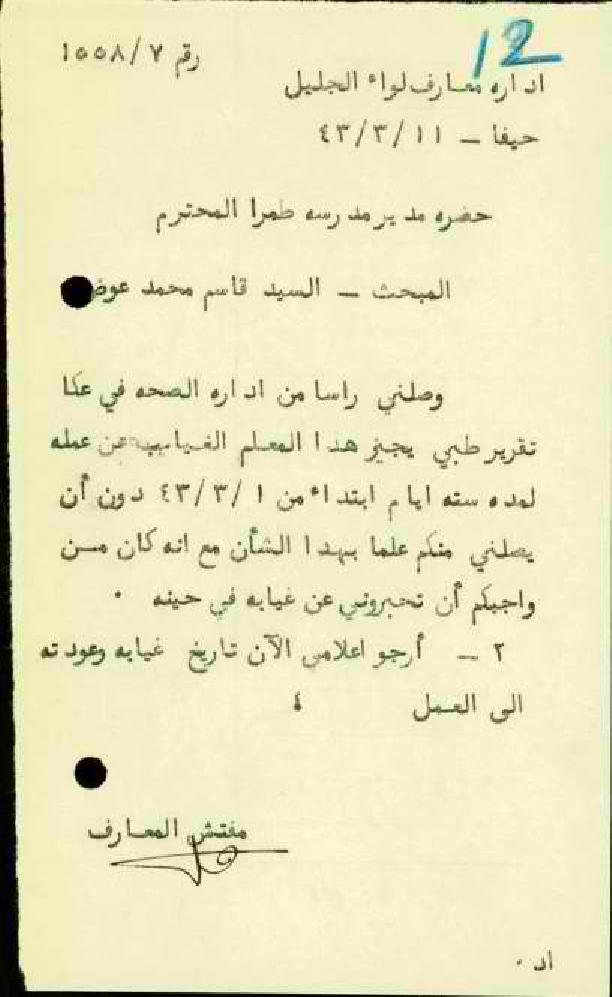 12
رقم ٧/١٥٥٨
اداره معارف لواء الجليل
حيفا – ٤٣/٣/١١
حضره مدير مدرسه طمرا المحترم
المبحث – السيد قاسم محمد عوض
وصلني راسا من اداره الصحه في عكا
تقرير طبي يجيز هدا المعلم الغياب عن عمله
لمده سته ايام ابتداء من ٤٣/٣/١ دون أن
يصلني منكم علما بهدا الشأن مع انه كان مـن
واجبكم أن تحبروني عن غيابه في حينه ٠
٢ – أرجو اعلامي الآن تاريخ غيابه وعودته
الى العمل
مفتش المعارف